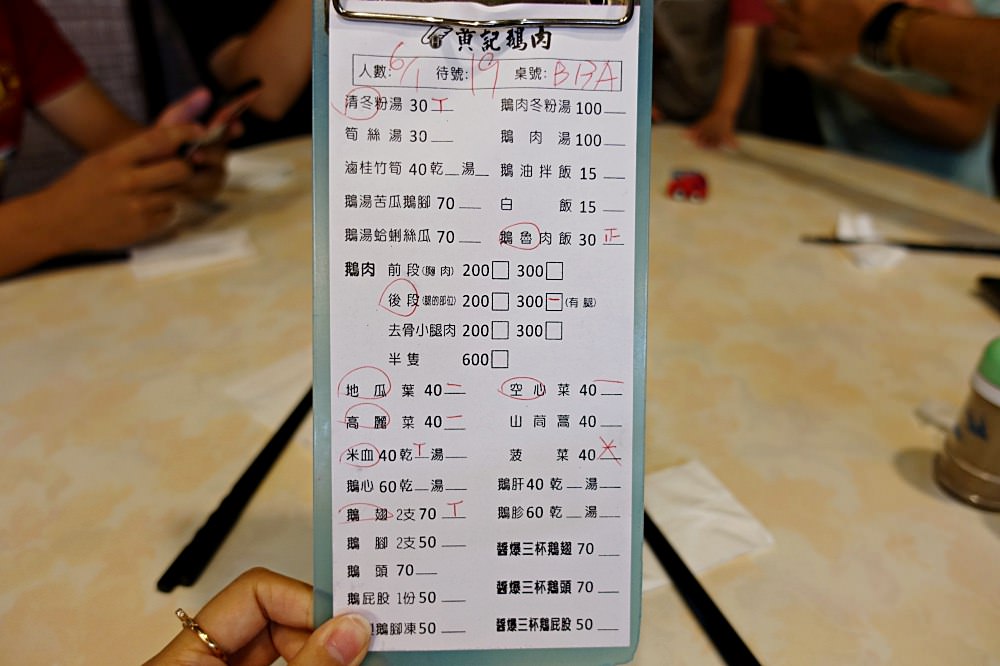 黃記鵝肉
人數: 6/1 待號: 19 桌號: B13A
清冬粉湯 30 T 鵝肉冬粉湯 100
筍絲湯 30 鵝肉湯 100
滷桂竹筍 40 乾__湯__ 鵝油拌飯 15
鵝湯苦瓜鵝腳 70 白飯 15
鵝湯蛤蜊絲瓜 70 鵝魯肉飯 30 正
鵝肉 前段(胸肉) 200□ 300□
後段(腿的部位) 200□ 300□一 (有腿)
去骨小腿肉 200□ 300□
半隻 600□
地瓜葉 40 二 空心菜 40 一
高麗菜 40 二 山茼蒿 40
米血 40 乾 T 湯__ 菠菜 40 X
鵝心 60 乾__湯__ 鵝肝 40 乾__湯__
鵝翅 2支 70 T 鵝胗 60 乾__湯__
鵝腳 2支 50 醬爆三杯鵝翅 70
鵝頭 70 醬爆三杯鵝頭 70
鵝屁股 1份 50
鵝腳凍 50 醬爆三杯鵝屁股 50